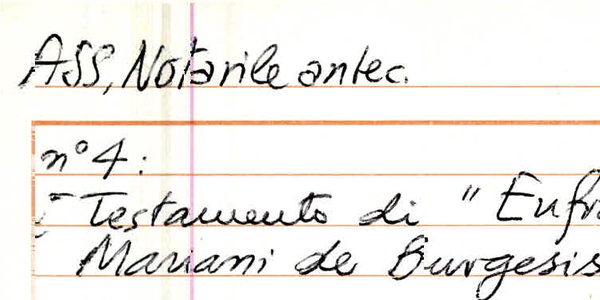 ASS, Notarile antec.
n° 4:
- Testamento di "Enfr
Mariani de Burgesis